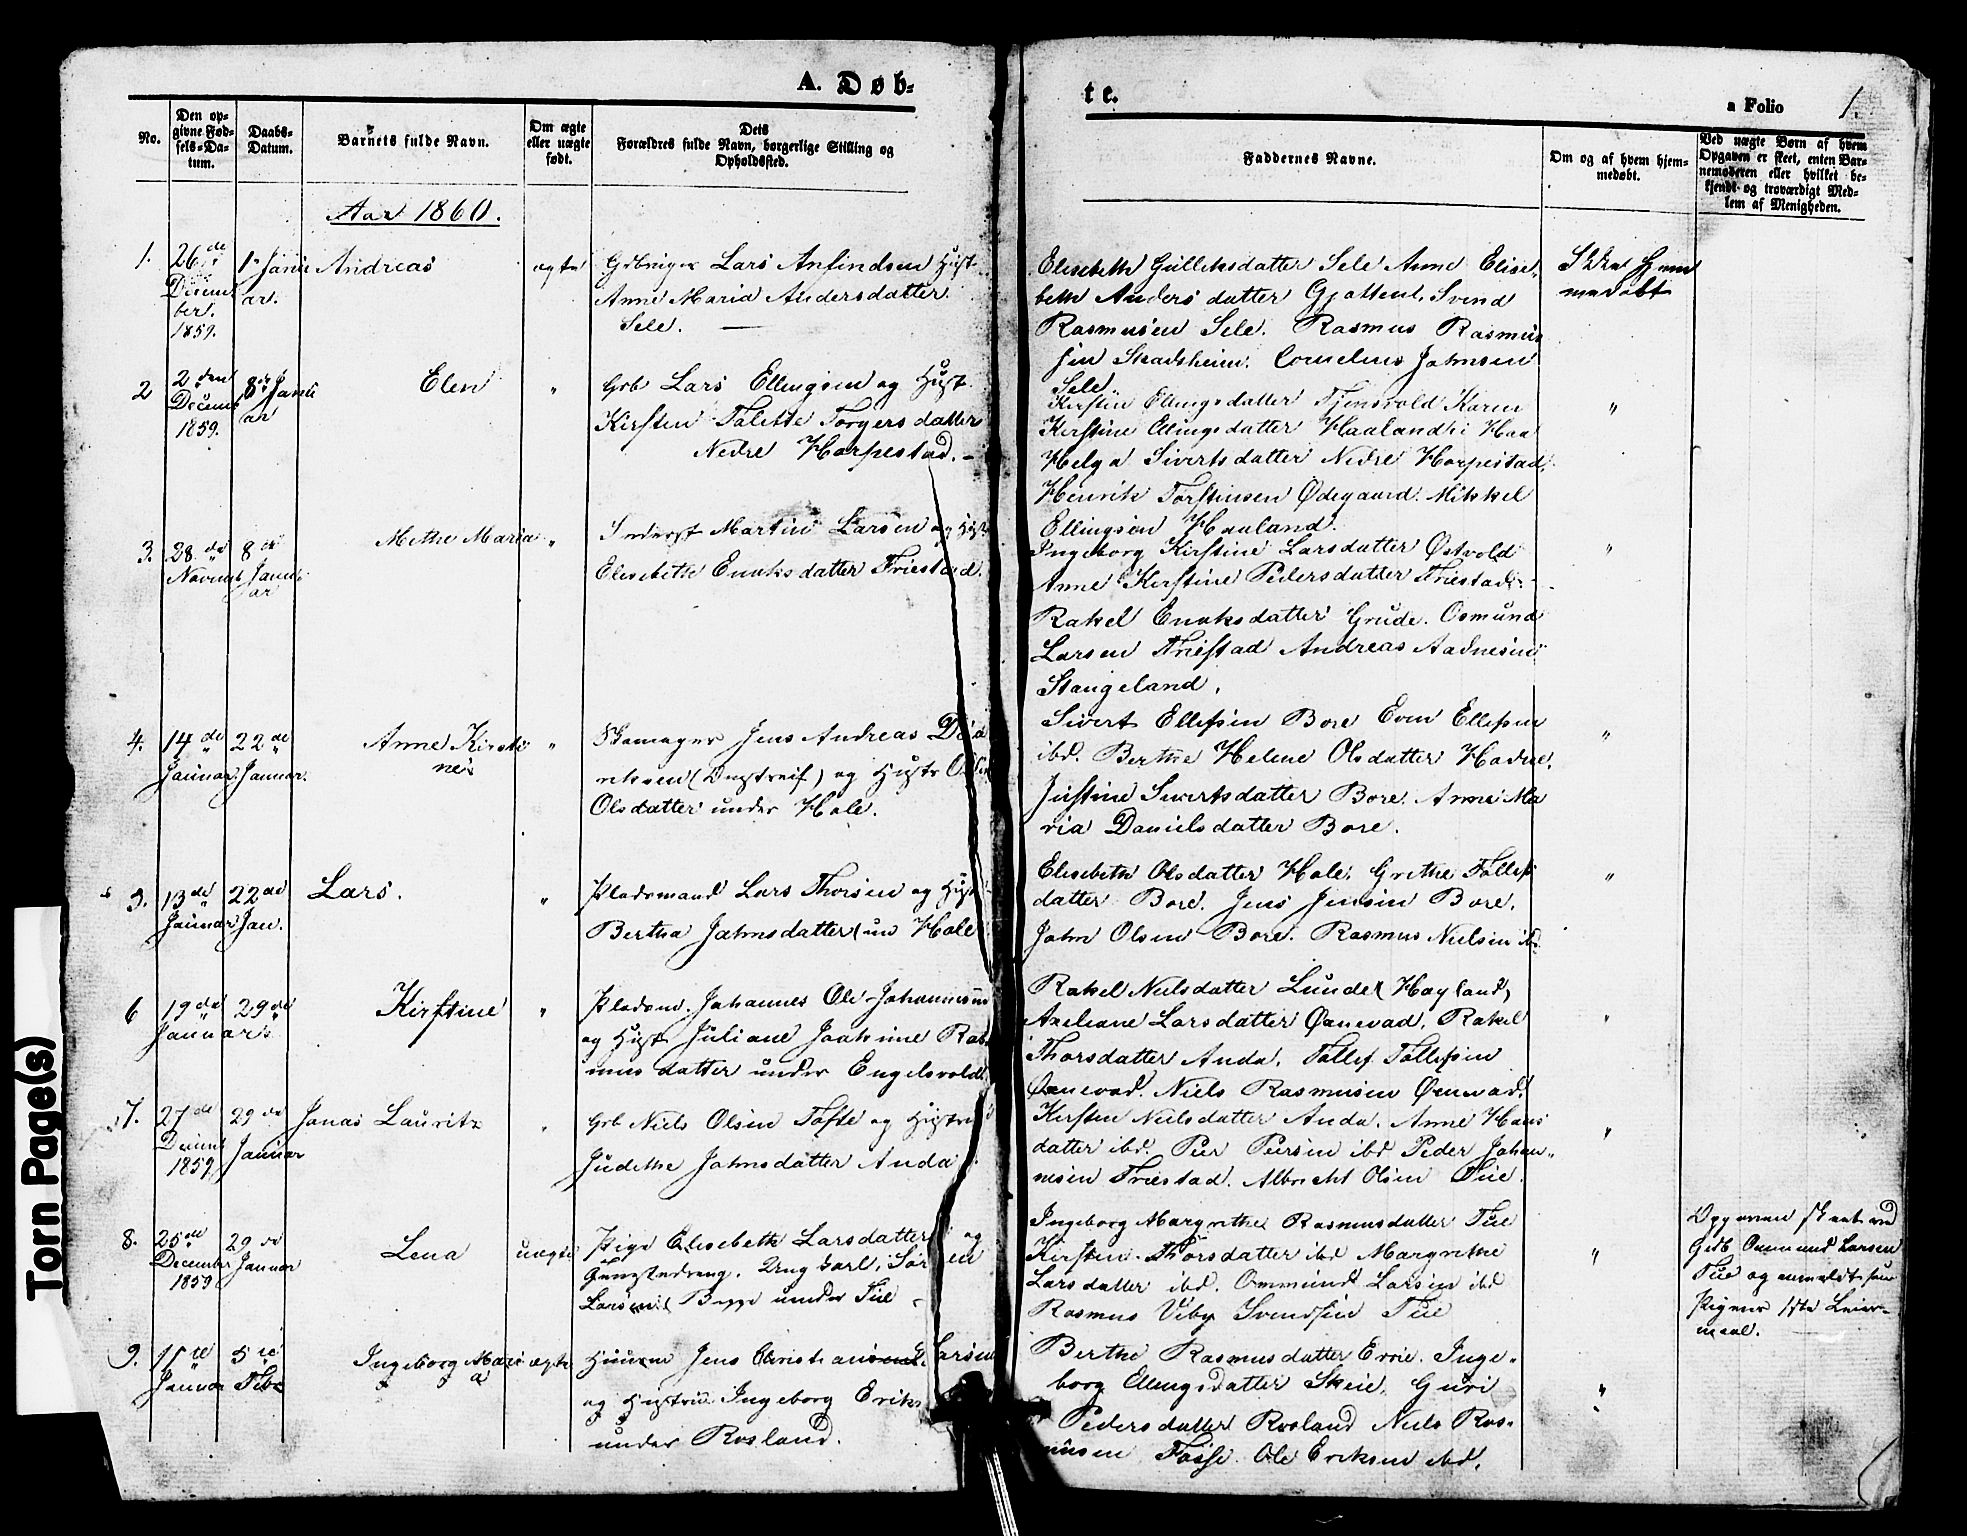 A. Døb-
te.
a Folio
1.
No.
Den op-
givne Fød-
sels-Da-
tum.
Daabs-
Datum.
Barnets fulde Navn.
Om ægte
eller uægte
født.
Dets
Forældres fulde Navn, borgerlige Stilling og
Opholdssted.
Faddernes Navne.
Om og af hvem hjem-
medøbt.
Ved uægte Børn af hvem
Opgaven er skeet, enten Bar-
nemoderen eller hvilket be-
kjendt og troværdigt Med-
lem af Menigheden.
Aar 1860.
1.
26de
Decem
ber.
1859.
1ste Janu
ar.
Andreas
ægte
Gdbruger Lars Anfindsen Hust.
Anne Maria Andersdatter
Sele. —
Elisebeth Gulleksdatter Sele Anne Elise-
beth Andersdatter Gjottent. Svend
Rasmusen Sele. Rasmus Rasmus
sen Stadsheim. Cornelius Johnsen
Sele.
Ikke Hjem
medøbt
2
2den
Decemb
1859.
8de Janu
ar
Elen
"
Grb Lars Ellingsen og Hust.
Kirsten Talette Torgersdatter
Nedre Horpestad. -
Kirsten Ellingsdatter Tjensvold Karen
Kirstine Ellingsdatter Haaland i Haa
Helga Sivertsdatter Nedre Horpestad,
Henrik Torstensen Ødegaard. Mikkel
Ellingsen Haaland.
"
3.
28de
Novemb
8de
Janu
ar
Methe Maria
"
Inderst Martin Larsen og Hust
Elisebeth Enoksdatter Friestad.
Ingeborg Kirstine Larsdatter Østvold
Anne Kirstine Pedersdatter Friestad.
Rakel Enoksdatter Grude. Osmund
Larsen Friestad Andreas Aadnesen
Stangeland,
"
4.
14de
Januar.
22de
Januar.
Anne Kirsti
ne
"
Skomager Jens Andreas
og Hustr
Olsdatter under Hole.
Sivert Ellefsen Bore Even Ellefsen
ibd. Berthe Helene Olsdatter Hodne.
Justine Sivertsdatter Bore. Anne Ma
ria Danielsdatter Bore.
"
5.
13de
Januar
22de
Jan.
Lars.
"
Pladsmand Lars Thorsen og Hust
Bertha Johnsdatter un Hole
Elisebeth Olsdatter Hole. Grethe Tollefs
datter Bore. Jens Jensen Bore.
John Olsen Bore. Rasmus Nielsen ibd
"
6
19de
29de
Januar
Kirstine
"
Pladsm. Johannes Ole Johannesen
og Hust Juliane Joakime Ras
mus datter under Engelsvold
Rakel Nielsdatter Lunde (Høyland)
Axeliane Larsdatter Øxnevad. Rakel
Thorsdatter Anda. Tollef Tollefsen
Øxnevad. Niels Rasmusen Øxnevad.
"
7.
27de
Decemb
1859
29de
Januar
Jonas Lauritz
"
Grb Niels Olsen Tofte og Hustru
Judithe Johnsdatter Anda
Kirsten Nielsdatter Anda. Anne Hans
datter ibd. Peer Persen ibd Peder Johan-
nesen Friestad. Albrecht Olsen Tue.
"
8.
25de
December
1859
29de
Januar
Lena
uægte
Pige Elisebeth Larsdatter og
Ungkarl,
Larsen Begge under Tue -
Ingeborg Margrethe Rasmusdatter Tue
Kirsten Thorsdatter ibd Margrethe
Larsdatter ibd. Ommund Larsen ibd
Rasmus Viby Svendsen Tue
"
Opgaven skeet ved
Gdb Ommund Larsen
Tue og anmeldt som
Pigens 1ste Leier-
maal.
9.
11te
Januar
5te
Feb
Ingeborg Mari
a
ægte
Huusm Jens Christiansen Larsen
og Hustru Ingeborg Eriks
under Rosland.
Berthe Rasmusdatter Erve. Inge-
borg Ellingsdatter Skeie. Guri
Pedersdatter Rosland Niels Ras-
musen Fosse. Ole Eriksen ibd.
"
Torn Page(s)